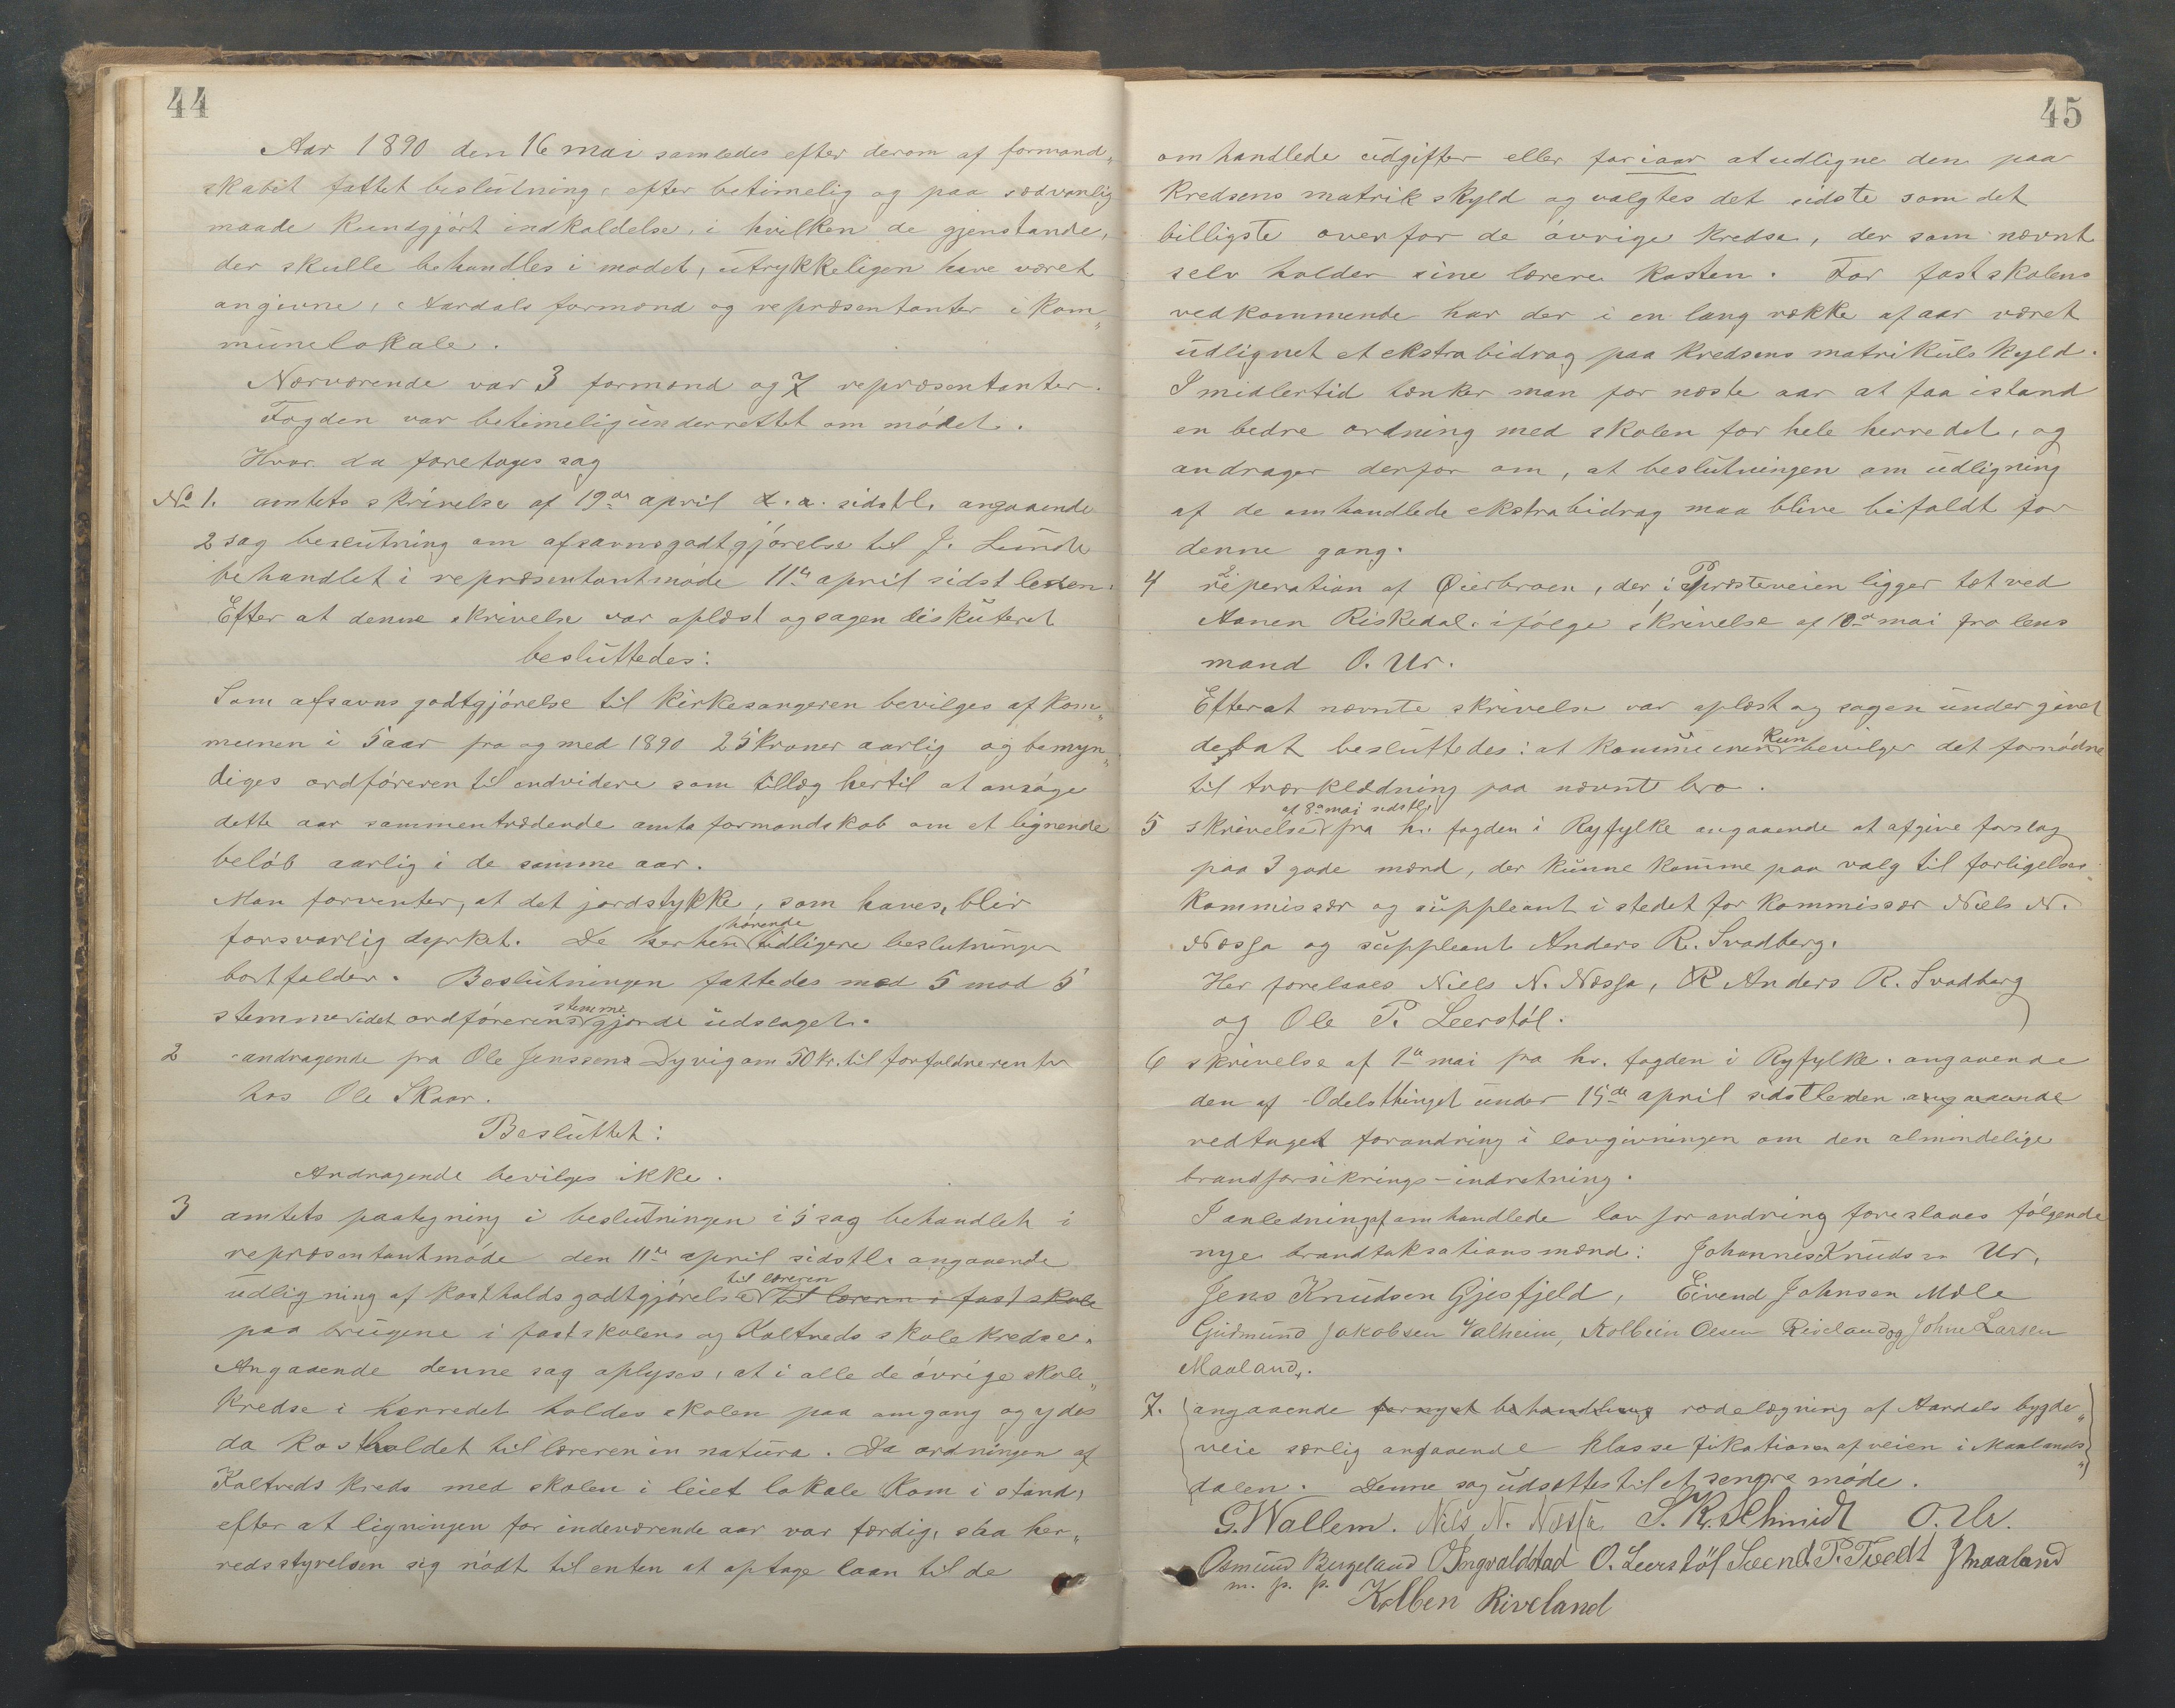 44
Aar 1890 den 16 mai samledes efter derom af formand„
skabet fattet beslutning, efter betimelig og paa sædvanlig
maade kundgjort indkaldelse, i hvilken de gjenstande,
der skulle behandles i mødet, utrykkeligen have været
angivne, Aardals formænd og repræsentanter i kom„
munelokale.
Nærværende var 3 formænd og 7 repræsentanter.
Fogden var betimelig underrettet om mødet.
Hvor da foretoges sag
No 1. amtets skrivelse af 19de april d. a. sidstl. angaaende
2 sag beslutning om afsavnsgodtgjørelse til J. Lunde
behandlet i repræsentantmøde 11te april sidstleden.
Efter at denne skrivelse var oplæst og sagen diskuteret
besluttedes:
Som afsavns godtgjørelse til kirkesangeren bevilges af kom„
munen i 5 aar fra og med 1890 25 kroner aarlig og bemyn„
diges ordføreren til endvidere som tillæg hertil at ansøge
dette aar sammentrædende amtsformandskab om et lignende
beløb aarlig i de samme aar.
Man forventer, at det jordstykke, som haves, blir
forsvarlig dyrket. De herhen hørende tidligere beslutninger
bortfalder. Beslutningen fattedes med 5 mod 5
stemmer idet ordførerens stemme gjorde udslaget.
2 andragende fra Ole Jenssen Dyvig om 50 kr. til forfaldne renter
hos Ole Skaar.
Besluttet:
Andragende bevilges ikke.
3 amtets paategning i beslutningen i 5 sag behandlet i
repræsentantmøde den 11te april sidstl. angaaende
udligning af kostholdsgodtgjørelse til læreren til læreren i fast skole
paa brugene i fastskolens og Kaltveds skolekredse.
Angaaende denne sag oplyses, at i alle de øvrige skole„
kredse i herredet holdes skolen paa omgang og ydes
da kostholdet til læreren in natura. Da ordningen af
Kaltveds kreds med skolen i leiet lokale kom i stand,
efter at ligningen for indeværende aar var færdig, saa her„
redsstyrelsen sig nødt til enten at optage laan til de
45
omhandlede udgifter eller for iaar at udligne den paa
kredsens matrikskyld og valgtes det sidste som det
billigste overfor de øvrige kredse, der som nævnt
selv holder sine lærere kosten. For fastskolens
vedkommende har der i en lang række af aar været
udlignet et ekstrabidrag paa kredsens matrikulskyld.
Imidlertid tænker man for næste aar at faa istand
en bedre ordning med skolen for hele herredet, og
andrager derfor om, at beslutningen om udligning
af de omhandlede ekstrabidrag maa blive bifaldt for
denne gang.
4 reperation af Øierbroen, der i Præsteveien ligger tæt ved
Aanen Riskedal. ifølge skrivelse af 10de mai fra lens
mand O. Ur.
Efterat nævnte skrivelse var oplæst og sagen undergivet
debat besluttedes: at kommunen kun bevilger det fornødne
til tværklædning paa nævnt bro.
5 skrivelse af 8de mai sidstl. fra hr. fogden i Ryfylke angaaende at afgive forslag
paa 3 gode mænd, der kunne komme paa valg til forligelses
kommissær og suppleant i stedet for kommissær Niels N.
Næssa og suppleant Anders R. Svadberg.
Her foreslaaes Niels N. Næssa, Anders R. Svadberg
og Ole P. Leerstøl.
6 skrivelse af 1te mai fra hr. fogden i Ryfylke. angaaende
den af Odelsthinget under 15de april sidstleden angaaende
vedtaget forandring i lovgivningen om den almindelige
brandforsikrings-indretning.
I anledning af omhandlede lovforandring foreslaaes følgende
nye brandtaksationsmænd: Johannes Knudsen Ur,
Jens Knudsen Gjesfjeld, Eivend Johnsen Mæle
Gudmund Jakobsen Valheim, Kolbein Olsen Riveland og Johne Larsen
Maaland.
7. angaaende fornyet behandling rodelægning af Aardals bygde„
veie særlig angaaende klassefikationen af veien i Maalands„
dalen. Denne sag udsattes til et senere møde.
G. Wallem. Nils N. Næssa S. K. Schmidt O. Ur.
Osmund Bergeland O Ingvaldstad O. Leerstøl Svend. P. Tvedt J Maaland
m. p. p. Kolben Riveland